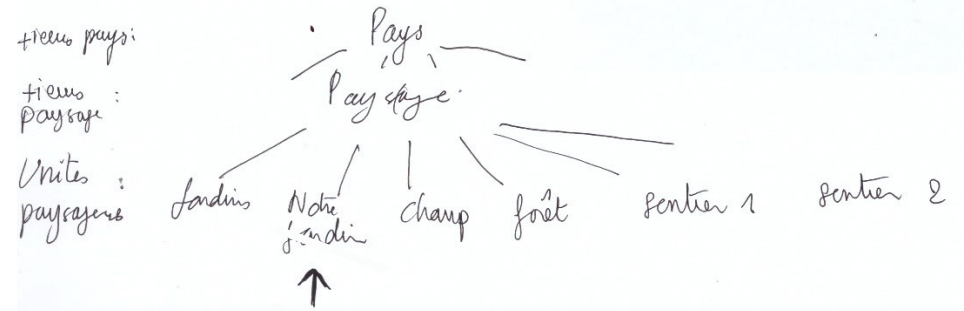 tiers pays : Pays
tiers : Paysage
paysage
Unités :
paysagères Jardins Notre champ forêt sentier 1 sentier 2
jardin